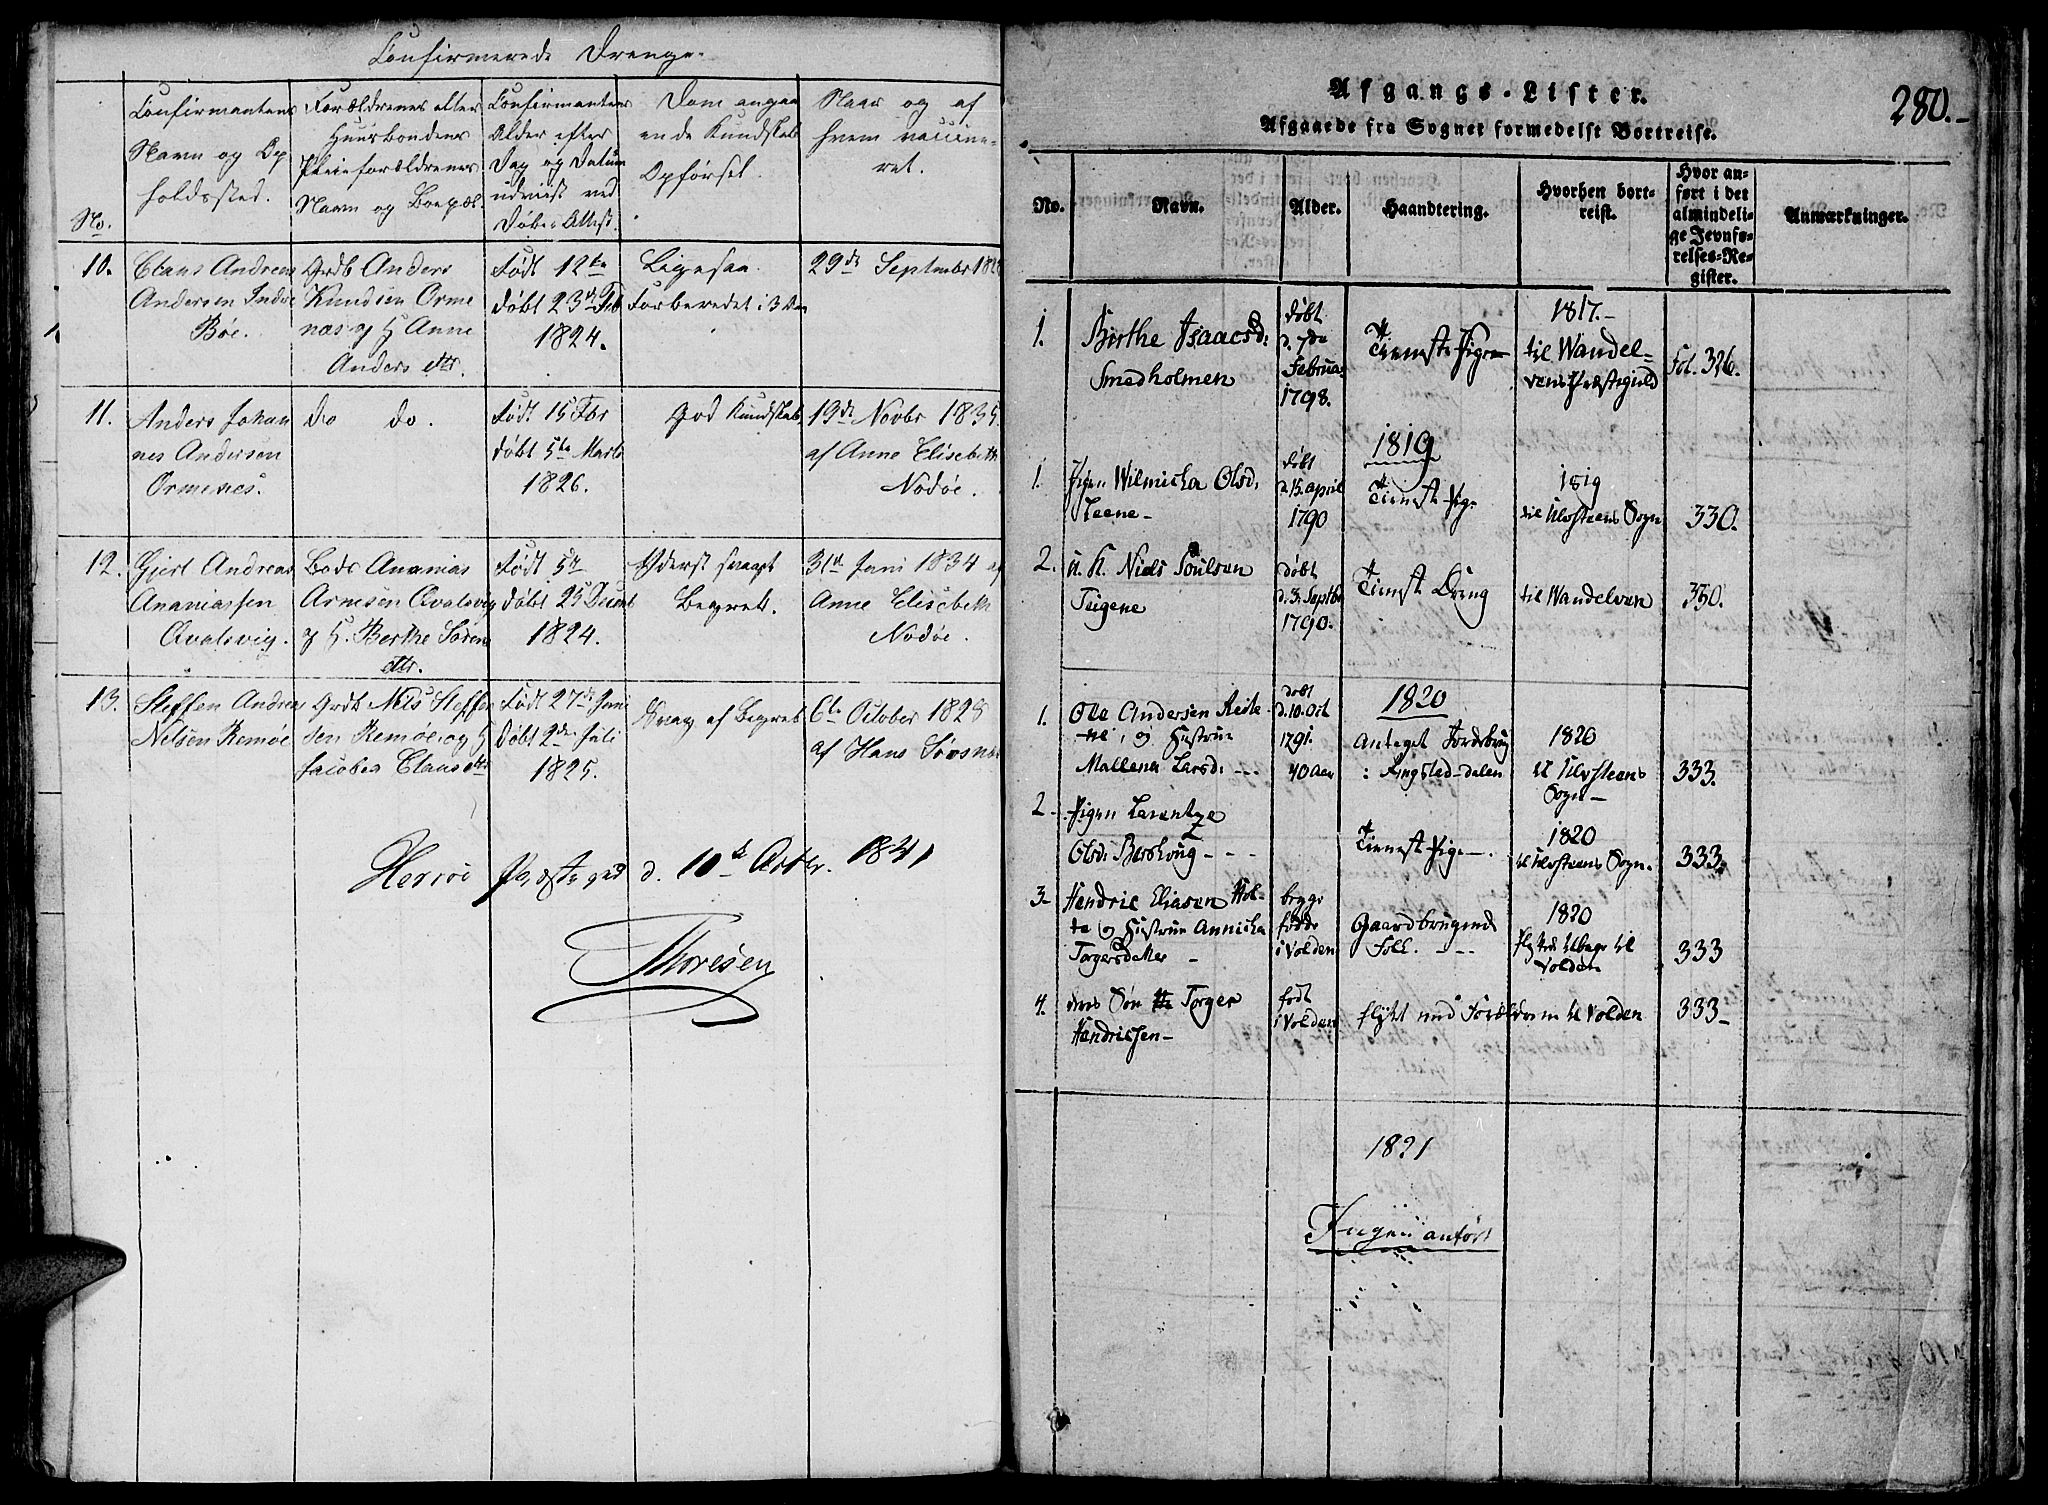 Confirmerede Drenge.
No.
Confirmantens
Navn og Op
holdssted.
Forældrenes eller
Huusbondens
Pleieforældrenes
Navn og Boepæl.
Confirmantens
Alder efter
Dag og Datum
udviist ved
Døbe-Attest.
Dom angaa
ende Kundskab
Opførsel.
Naar og af
hvem vaccine-
ret.
10.
Claus Andreas
Andersen Indre
Bøe.
Grdb Anders
Knudsen Orme
næs og H Anne
Anders dtr.
Født 12te
døbt 23de Feb
1824.
Ligesaa.
Forberedet i 3
29de Septembr 1828
11.
Anders Johan
nes Andersen
Ormenes.
do do.
Født 15 Fbr
døbt 5te Marts
1826.
God Kundskab
19de Novbr 1835
af Anne Elisebeth
Nodøe.
12.
Gjert Andreas
Ananiassen
Qvalsvig.
Ananias
Arnesen Qvalsvig
og H. Berthe Søren
dtr.
Født 5te
døbt 25 Decemb
1824.
Yderst svagt
Begreb.
31te Juni 1834 af
Anne Elisebeth
Nodøe.
13.
Steffen Andreas
Nilsen Remøe
Grdb Nils Steffen
sen Remøe og H
Jacobea Claus dtr
Født 27de Juni
Døbt 2den Juli
1825.
Svag af Begreb
6te October 1828
af Hans
Herrøe Præstegrd d. 10de Octbr. 1841
Thoresen
Afgangs-Lister.
280.-
Afgaaede fra Sognet formedelst Bortreise.
No.
Navn.
Alder.
Haandtering.
Hvorhen bort-
reist.
Hvor an-
ført i det
almindeli-
ge Jevnfø-
relses-Re-
gister.
Anmærkninger.
1.
Birthe Isaacsd:
Smedholmen
døbt
d. 7de
Februar
1798.
Tieneste Pige
1817.-
til Wandel-
vens Præstegield
Fol. 326.
1819
1.
Pigen Wilmicka Olsd:
døbt
d. 15. april
1790
Tienest Pige
1819
til Ulvsteens Sogn
330.
2.
u. K. Niels Poulsen
Teigene
døbt
d. 3. Septbr
1790.
Tienest Dreng
til Wandelven
330.
1820
1.
Ole Andersen
og Hustrue
Mallena Larsd: - - -
døbt
d. 10. Oct
1791.
40 Aar
Antaget Jordebrug
i Ringsted-dalen
1820
til Ulvsteens
Sogn -
333.
2.
Pigen Larentze
Olsd: - - -
Tienest Pige -
1820
til Ulvsteens Sogn.
333.
3.
Hendric Eliasen Hol-
og Hustrue Annicka
Torgersdatter -
begge
fødde
i Volden
Gaardbrugend
Folk. - - -
1820
til
Volden
333
4.
deres Søn Torger
Hendricsen -
født
i Volden
flyttet med Forældrene til Volden
333-
1821
Ingen anført